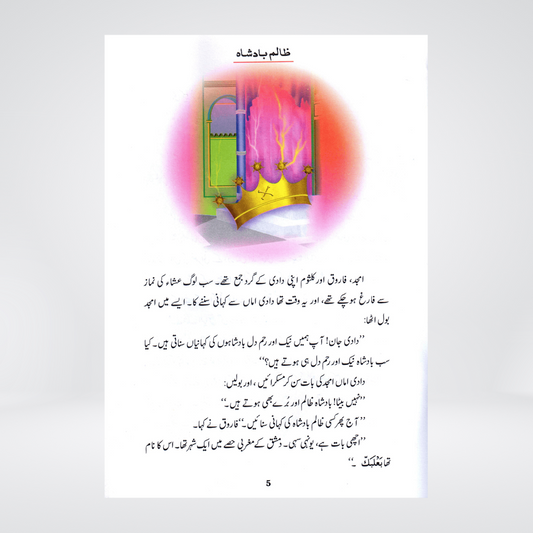 ظالم بادشاہ
امجد، فاروق اور کلثوم اپنی دادی کے گرد جمع تھے۔ سب لوگ عشاء کی نماز
سے فارغ ہوچکے تھے، اور یہ وقت تھا دادی اماں سے کہانی سننے کا۔ ایسے میں امجد
بول اٹھا:
’’دادی جان! آپ ہمیں نیک اور رحم دل بادشاہوں کی کہانیاں سناتی ہیں۔ کیا
سب بادشاہ نیک اور رحم دل ہی ہوتے ہیں؟‘‘
دادی اماں امجد کی بات سن کر مسکرائیں، اور بولیں:
’’نہیں بیٹا! بادشاہ ظالم اور بُرے بھی ہوتے ہیں۔‘‘
’’آج پھر کسی ظالم بادشاہ کی کہانی سنائیں۔‘‘ فاروق نے کہا۔
’’اچھی بات ہے، یونہی سہی۔ دمشق کے مغربی حصے میں ایک شہر تھا۔ اس کا نام
تھا بَعْلَبَكّ ۔‘‘
5